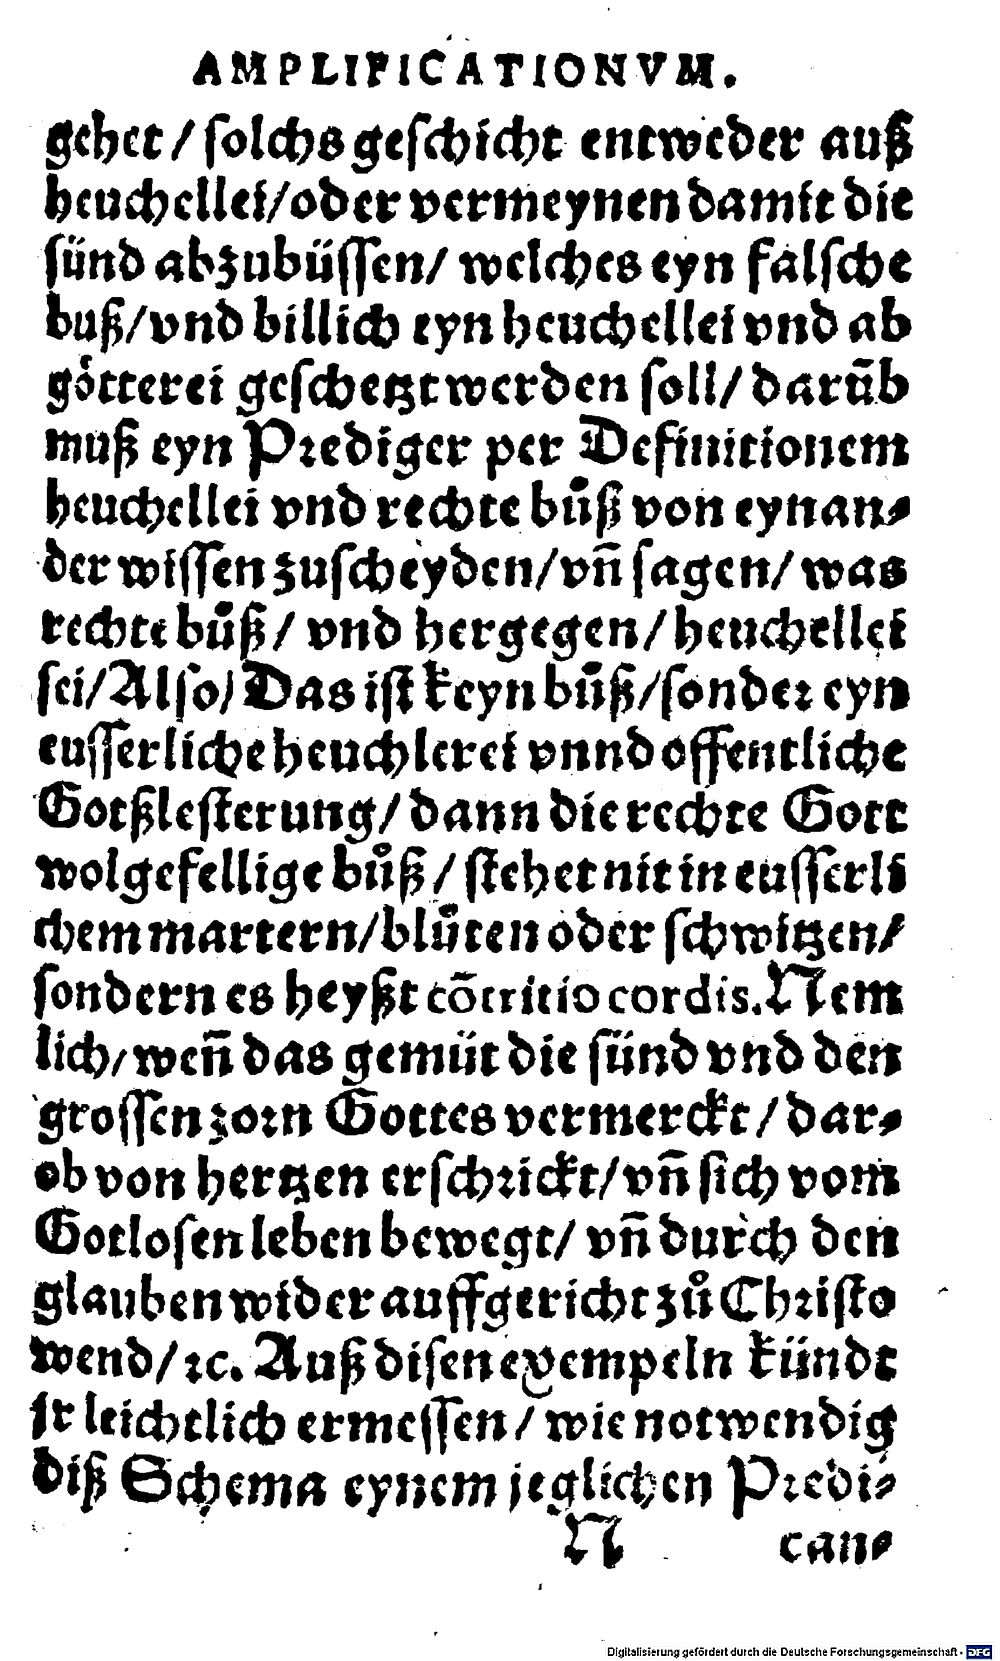 AMPLIFICATIONVM.
gehet / ſolchs geſchicht entweder auß
heuchellei/oder vermeynen damit die
ſünd abzubüſſen/ welches eyn falſche
buß/vnd billich eyn heuchellei vnd ab
gȯtterei geſchetzt werden ſoll/ darūb
muß eyn Prediger per Definitionem
heuchellei vnd rechte bůß von eynan⸗
der wiſſen zuſcheyden/vn̄ ſagen/ was
rechte bůß/ vnd hergegen/ heuchellei
ſei/Alſo/ Das iſt keyn bůß/ſonder eyn
euſſerliche heuchlerei vnnd offentliche
Gotßleſterung/ dann die rechte Gott
wolgefellige bůß/ ſtehet nit in euſſerli
chem martern/blůten oder ſchwitzen/
ſondern es heyßt cōtritio cordis. Nem
lich/ wen̄ das gemüt die ſünd vnd den
groſſen zorn Gottes vermerckt/ dar⸗
ob von hertzen erſchrickt/vn̄ ſich vom
Gotloſen leben bewegt/ vn̄ durch den
glauben wider auffgericht zů Chriſto
wend/ꝛc. Auß diſen exempeln kündt
ir leichtlich ermeſſen/ wie notwendig
diß Schema eynem jeglichen Predi⸗
N can⸗
Digitalisierung gefördert durch die Deutsche Forschungsgemeinschaft - DFG